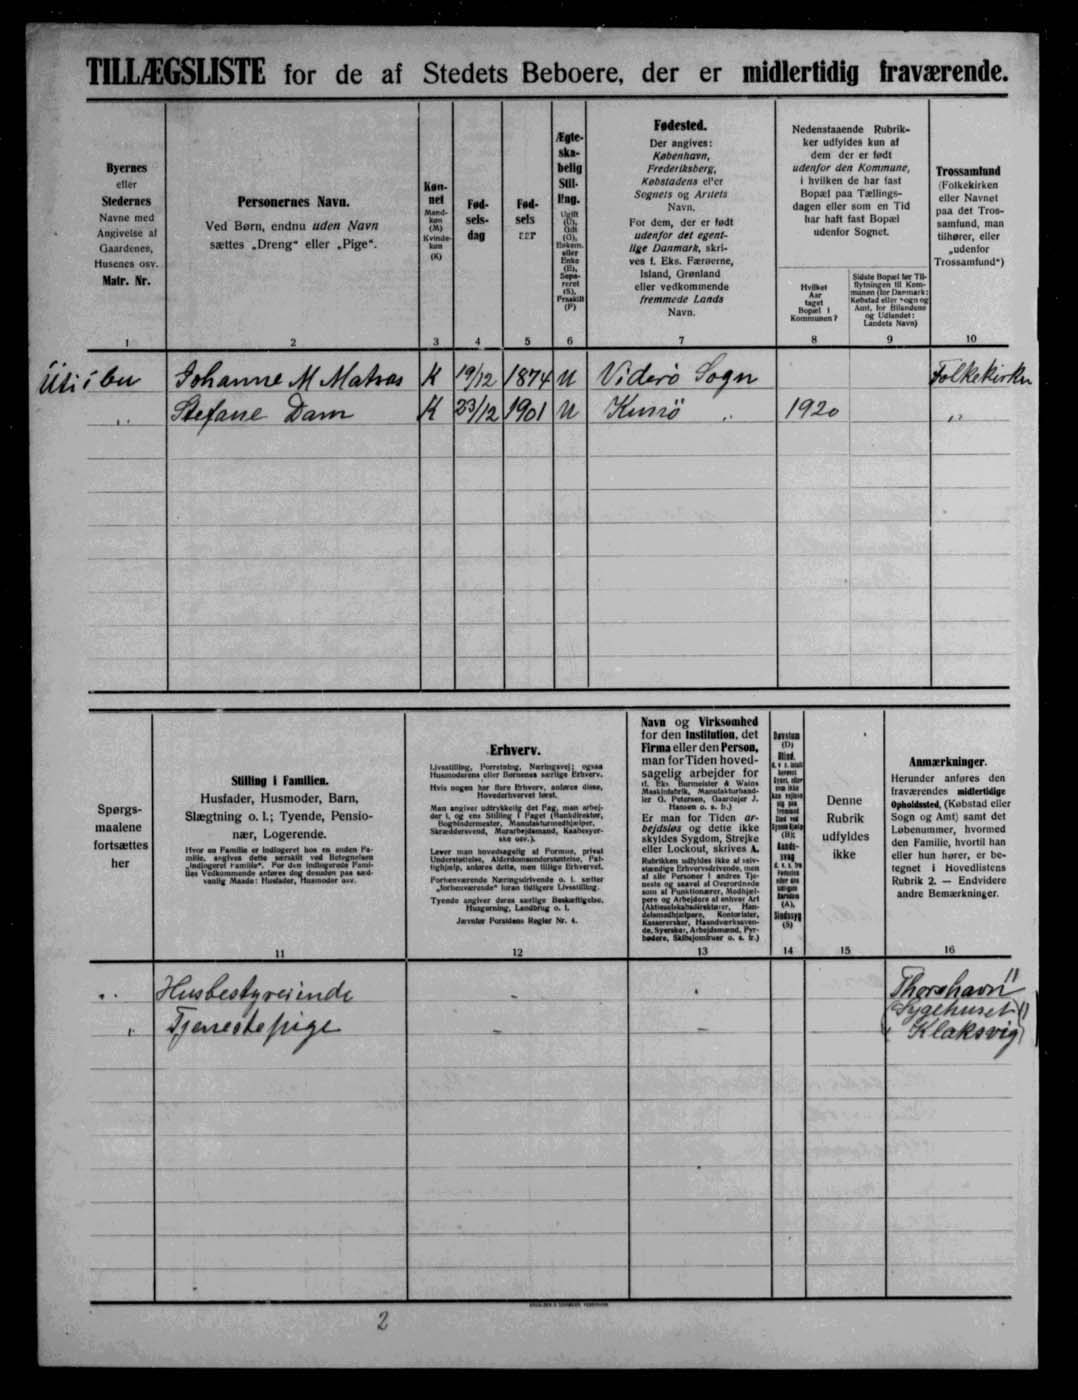 TILLÆGSLISTE for de af Stedets Beboere, der er midlertidig fraværende.
Byernes
eller
Stedernes
Navne med
Angivelse af
Gaardenes,
Husenes osv.
Matr. Nr.
1
Personernes Navn.
Ved Børn, endnu uden Navn
sættes „Dreng“ eller „Pige“.
2
Køn-
net
Mand-
køn
(M)
Kvinde-
køn
(K)
3
Fød-
sels-
dag
4
Fød-
sels
aar
5
Ægte-
ska-
belig
Stil-
ling.
Ugift
(U),
Gift
(G),
Enkem.
eller
Enke
(E),
Sepa-
reret
(S),
Fraskilt
(F)
6
Fødested.
Der angives:
København,
Frederiksberg,
Købstadens el'er
Sognets og Amtets
Navn.
For dem, der er født
udenfor det egent-
lige Danmark, skri-
ves f. Eks. Færøerne,
Island, Grønland
eller vedkommende
fremmede Lands
Navn.
7
Nedenstaaende Rubrik-
ker udfyldes kun af
dem der er født
udenfor den Kommune,
i hvilken de har fast
Bopæl paa Tællings-
dagen eller som en Tid
har haft fast Bopæl
udenfor Sognet.
Hvilket
Aar
taget
Bopæl i
Kommunen?
8
Sidste Bopæl før Til-
flytningen til Kom-
munen (for Danmark:
Købstad eller Sogn og
Amt, for Bilandene
og Udlandet:
Landets Navn)
9
Trossamfund
(Folkekirken
eller Navnet
paa det Tros-
samfund, man
tilhører, eller
„udenfor
Trossamfund“)
10
Úti í bø Johanne M Matras K 19/12 1874 U Viderö Sogn Folkekirken
„ Stefane Dam K 23/12 1901 U Kunö „ 1920 „
Spørgs-
maalene
fortsættes
her
Stilling i Familien.
Husfader, Husmoder, Barn,
Slægtning o. l.; Tyende, Pensio-
nær, Logerende.
Hvor en Familie er indlogeret hos en anden Fa-
milie, angives dette særskilt ved Betegnelsen
„indlogeret Familie“. For den indlogerede Fami-
lies Vedkommende anføres dog desuden paa sæd-
vanlig Maade: Husfader, Husmoder osv.
11
Erhverv.
Livsstilling, Forretning, Næringsvej; ogsaa
Husmoderens eller Børnenes særlige Erhverv.
Hvis nogen har flere Erhverv, anføres disse,
Hovederhvervet først.
Man angiver udtrykkelig det Fag, man arbej-
der i, og ens Stilling i Faget (Bankdirektør,
Bogbindermester, Manufakturmedhjælper,
Skræddersvend, Murarbejdsmand, Kaabesyer-
ske osv.).
Lever man hovedsagelig af Formue, privat
Understøttelse, Alderdomsunderstøttelse, Fat-
tighjælp, anføres dette, men tillige Erhvervet.
Forhenværende Næringsdrivende o. l. sætter
„forhenværende“ foran tidligere Livsstilling.
Tyende angiver deres særlige Beskæftigelse,
Husgerning, Landbrug o. l.
Jævnfør Forsidens Regler Nr. 4.
12
Navn og Virksomhed
for den Institution, det
Firma eller den Person,
man for Tiden hoved-
sagelig arbejder for
(f. Eks. Burmeister & Wains
Maskinfabrik, Manufakturhand-
ler G. Petersen, Gaardejer J.
Hansen o. s. fr.)
Er man for Tiden ar-
bejdsløs og dette ikke
skyldes Sygdom, Strejke
eller Lockout, skrives A.
Rubrikken udfyldes ikke af selv-
stændige Erhvervsdrivende, men
af alle Personer i andres Tje-
neste og saavel af Overordnede
som af Funktionærer, Medhjæl-
pere og Arbejdere af enhver Art
(Aktieselskabsdirektører, Han-
delsmedhjælpere, Kontorister,
Kassererker, Haandværkssven-
de, Syersker, Arbejdsmænd, Fyr-
bødere, Skibsjomfruer o. s. fr.)
13
Døvstum
(D)
Blind,
14
Denne
Rubrik
udfyldes
ikke
15
Anmærkninger.
Herunder anføres den
fraværendes midlertidige
Opholdssted, (Købstad eller
Sogn og Amt) samt det
Løbenummer, hvormed
den Familie, hvortil han
eller hun hører, er be-
tegnet i Hovedlistens
Rubrik 2. — Endvidere
andre Bemærkninger.
16
„ Husbestyreinde - - Thorshavn
(Sygehuset)
„ Tjenestepige - - Klaksvig
2